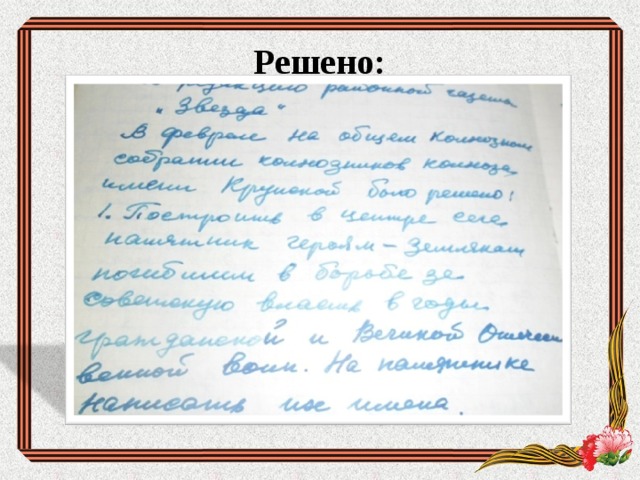 Решено:
редакцию районной газеты
„Звезда“
В феврале на общем колхозном
собрании колхозников колхоза
имени Крупской было решено:
1. Построить в центре села
памятник героям – землякам
погибшим в борьбе за
советскую власть в годы
гражданской и Великой Отечест
венной войн. На памятнике
написать их имена.